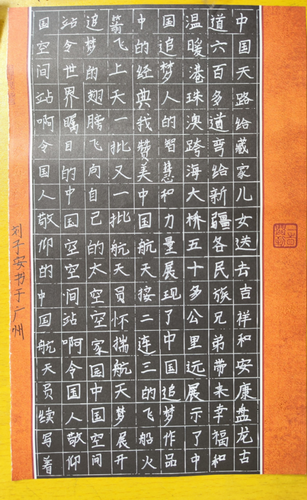 中国天路给藏家儿女送去吉祥和安康盘龙古
道六百多道弯给新疆各民族兄弟带来幸福和
温暖港珠澳跨海大桥五十多公里远展示了中
国追梦人的智慧和力量展现了中国追梦作品
中的经典我赞美中国航天接二连三的飞船火
箭飞上天一批又一批航天员怀揣航天梦展开
追梦的翅膀飞向自己的太空空家国中国空间
站令世界瞩目的中国空空间站啊令国人敬仰
国空间站啊令国人敬仰的中国航天员续写着
刘子安书于广州